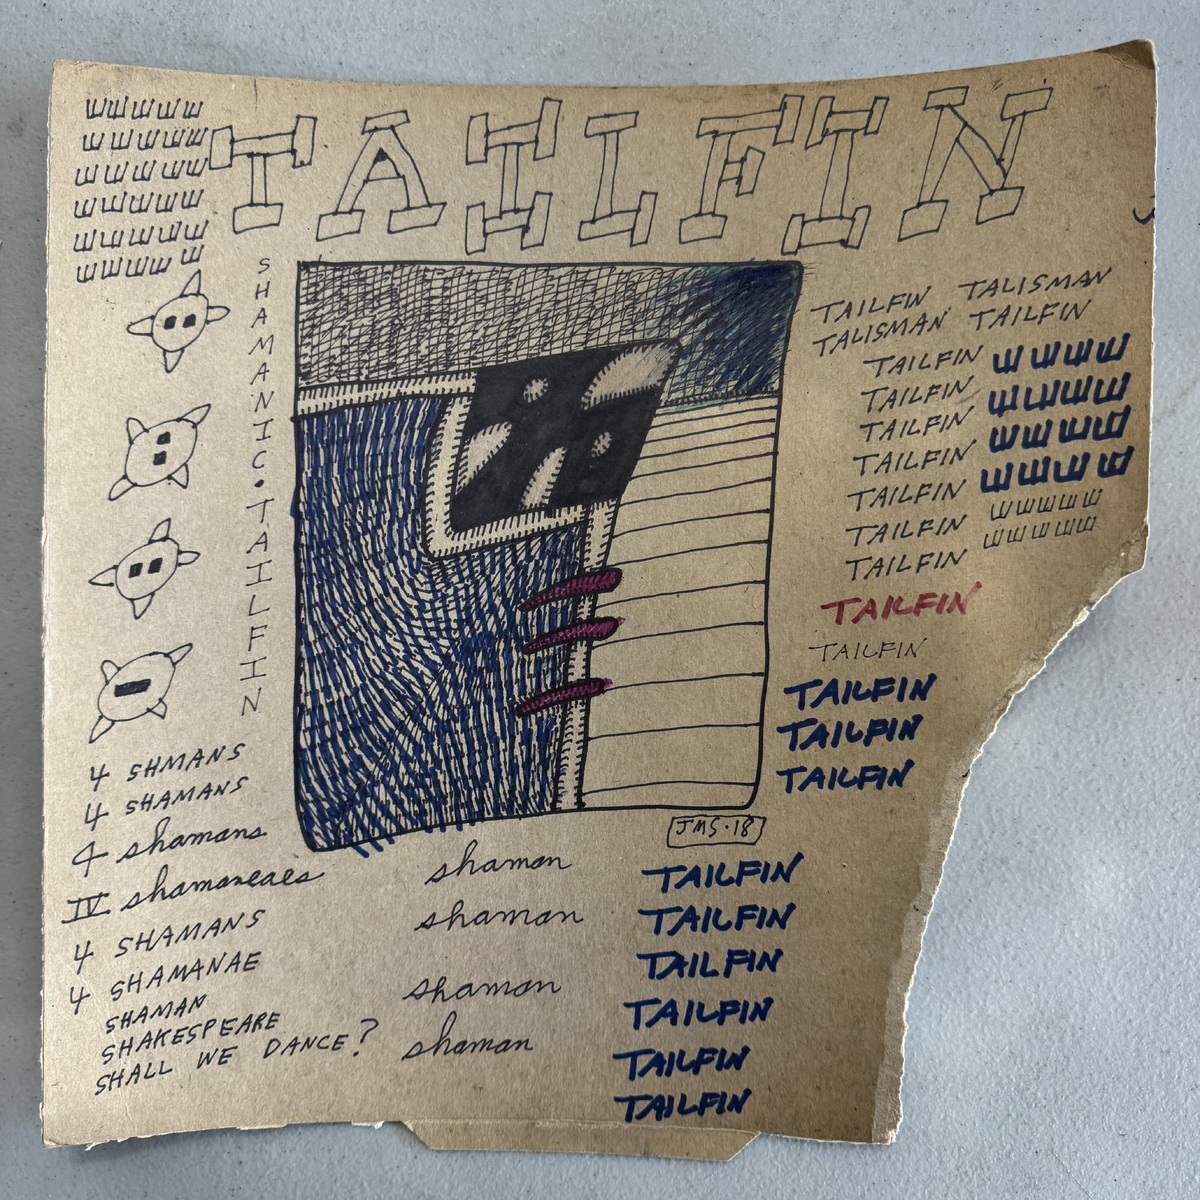 TAILFIN
SHAMANIC•TAILFIN
TAILFIN TALISMAN
TALISMAN TAILFIN
TAILFIN
TAILFIN
TAILFIN
TAILFIN
TAILFIN
TAILFIN
TAILFIN
TAILFIN
TAILFIN
TAILFIN
TAILFIN
TAILFIN
JMS•18
4 SHMANS
4 SHAMANS
4 shamans
IV shamaneaes
4 SHAMANS
4 SHAMANAE
SHAMAN
SHAKESPEARE
SHALL WE DANCE?
shaman
shaman
shaman
shaman
TAILFIN
TAILFIN
TAILFIN
TAILFIN
TAILFIN
TAILFIN